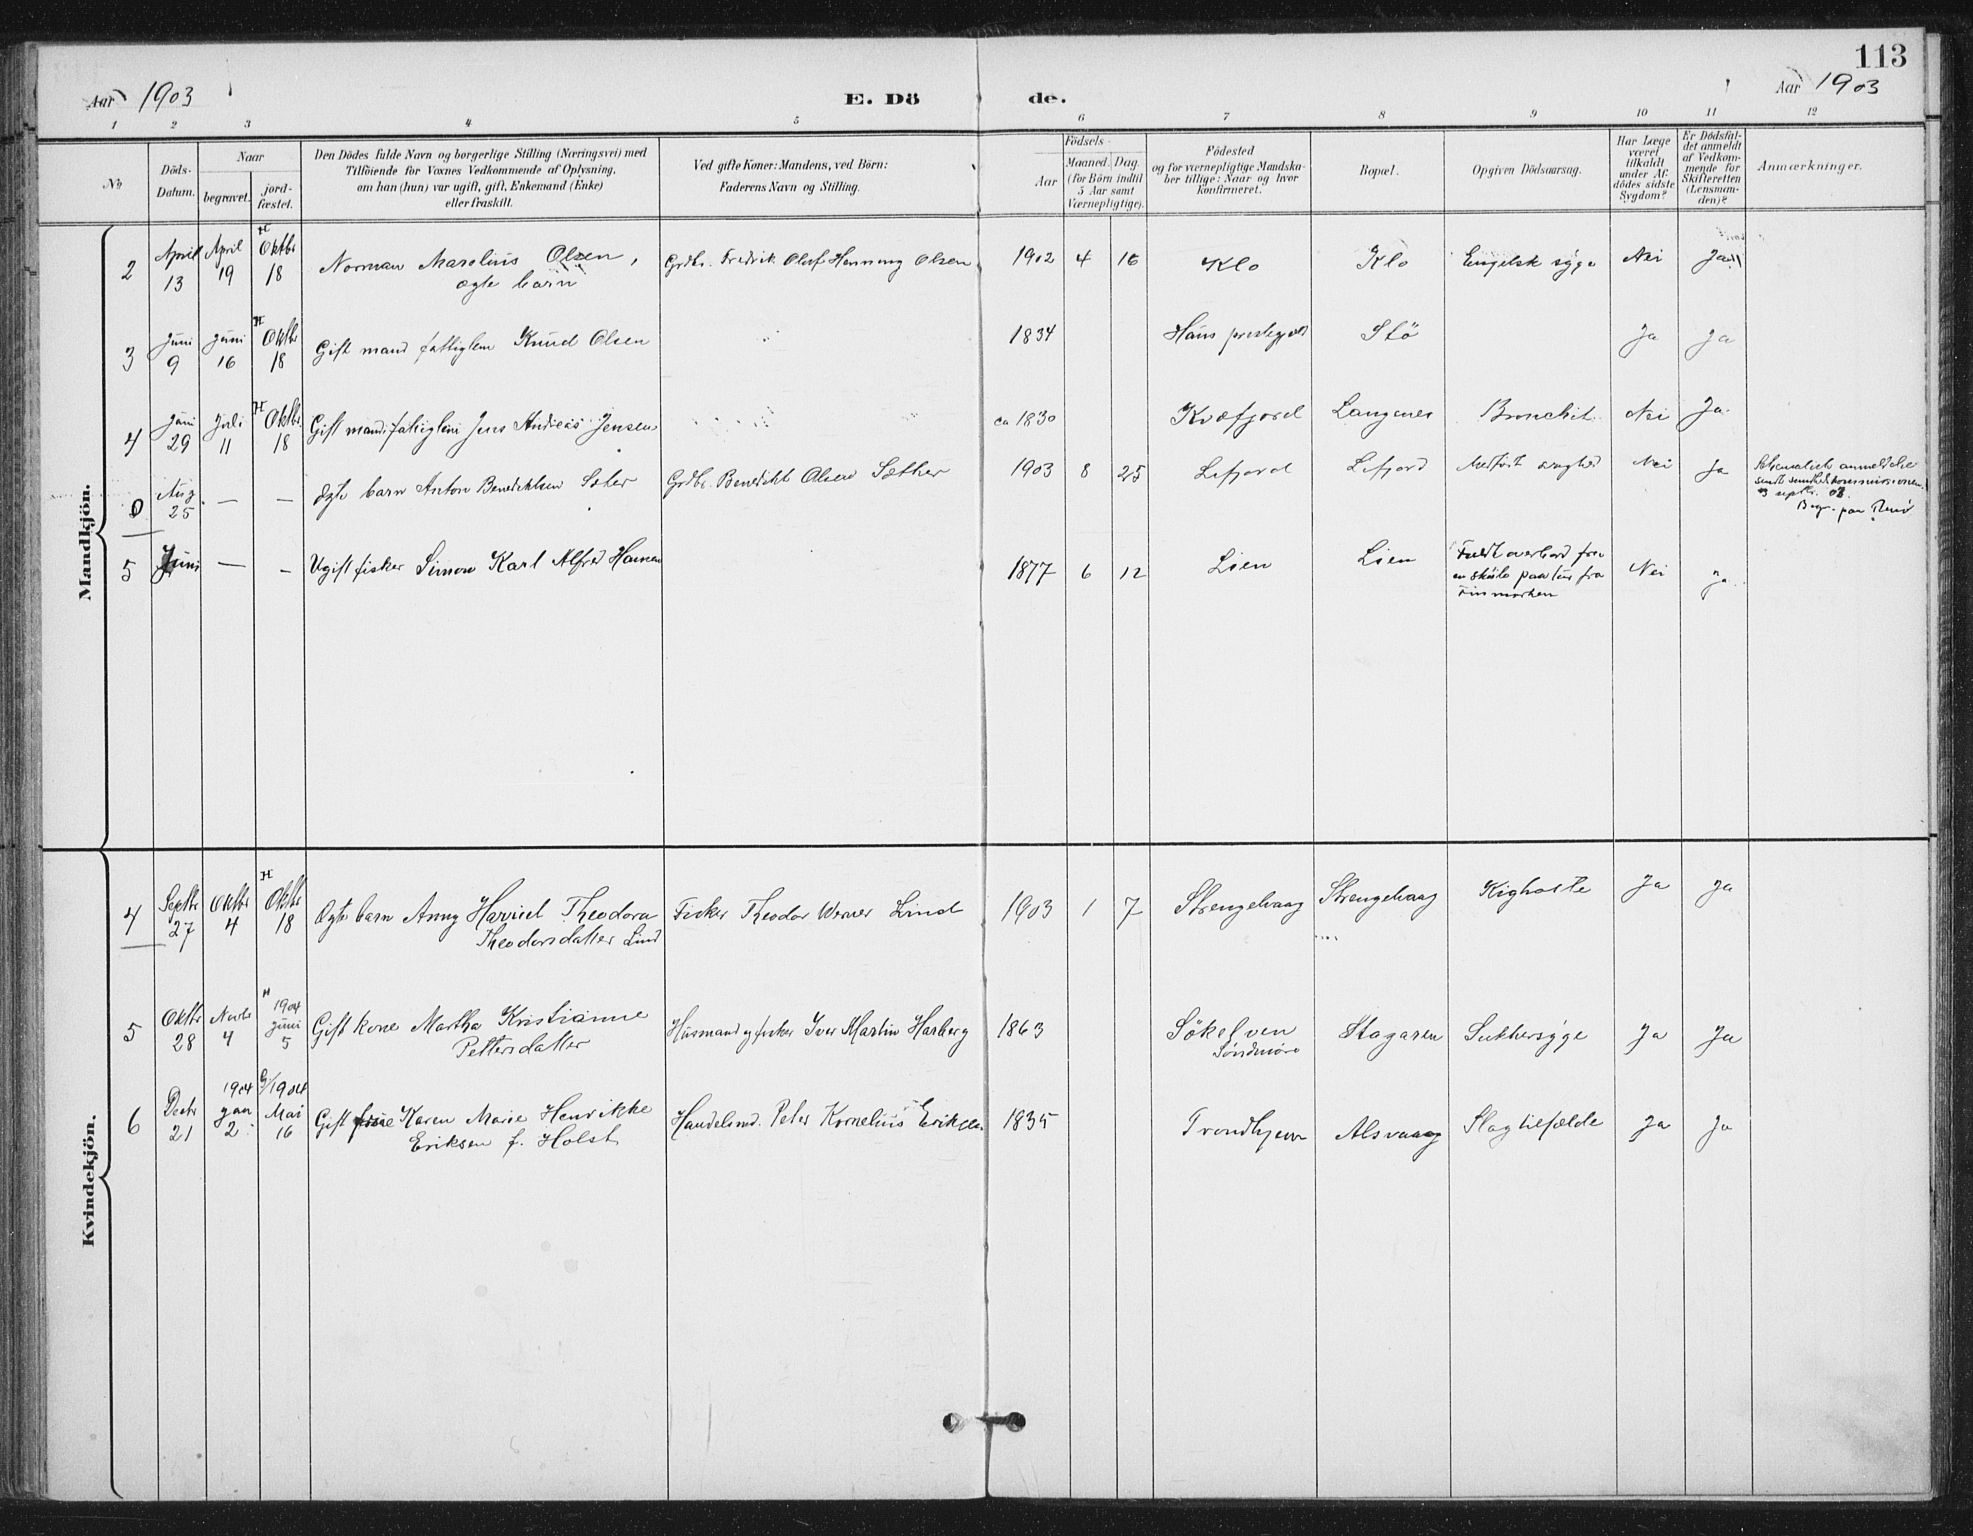 113
Aar 1903
E. Dö
de.
Aar 1903
1 2 3 4 5 6 7 8 9 10 11 12
No
Döds-
Datum.
Naar
begravet.
jord-
fæstet.
Den Dödes fulde Navn og borgerlige Stilling (Næringsvei) med
Tilföiende for Voxnes Vedkommende af Oplysning,
om han (hun) var ugift, gift, Enkemand (Enke)
eller fraskilt.
Ved gifte Koner: Mandens, ved Börn:
Faderens Navn og Stilling.
Födsels-
Aar
Maaned. Dag.
(for Börn indtil
5 Aar samt
Værnepligtige).
Födested
og for værnepligtige Mandska-
ber tillige: Naar og hvor
konfirmeret.
Bopæl.
Opgiven Dödsaarsag.
Har Læge
været
tilkaldt
under Af-
dödes sidste
Sygdom?
Er Dödsfal-
det anmeldt
af Vedkom-
mende for
Skifteretten
(Lensman-
den)?
Anmærkninger.
Mandkjön.
2 April 13 April 19 H Oktbr 18 Norman Marelius Olsen, Grdbr. Fredrik Oluf Henning Olsen 1902 4 16 Klo Klo Engelsk syge Nei Ja
ægte barn
3 Juni 9 Juni 16 H Oktbr 18 Gift mand fattiglem Knud Olsen 1834 Haus prestegjeld Stö Ja Ja
4 Juni 29 Juli 11 H Oktbr 18 Gift mand fattiglem Jens Andreas Jensen ca 1830 Kvæfjord Langenes Bronchit Nei Ja
0 Aug. 25 — — Ægte barn Anton Benediktsen Sæter Grdbr. Benedikt Olsen Sæther 1903 8 25 Lifjord Lifjord Medfödt svaghed Nei Ja Skematisk anmeldelse
sendt sundhedskommissionen
septbr. 03.
Begr. paa
5 Juni — — Ugift fisker Simon Karl Alfred Hansen 1877 6 12 Lien Lien Faldt overbord fra
en sköite paa tur fra
Finmarken Nei Ja
Kvindekjön.
4 Septbr 27 Oktbr 4 H Oktbr 18 Ægte barn Anny Harviel Theodora Fisker Theodor Werner Lind 1903 1 7 Strengelvaag Strengelvaag Kighoste Ja Ja
Theodorsdatter Lind
5 Oktbr 28 Novbr 4 H 1904 Juni 5 Gift kone Martha Kristianne Husmand og fisker Iver Martin Harberg 1863 Sökelven Stagaren Sukkersyge Ja Ja
Pettersdatter Söndmöre
6 Decbr 21 1904 Jan 2 G/1904 Mai 16 Gift frue Karen Marie Henrikke Handelsmd. Peter Kornelius Eriksen 1835 Trondhjem Alsvaag Slagtilfælde Ja Ja
Eriksen f. Holst